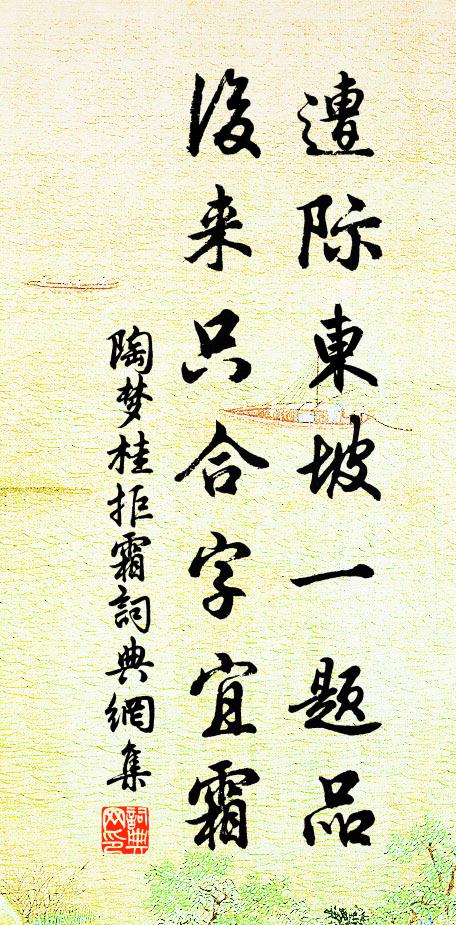 遭际東坡一题品
後来只合字宜霜
陶梦桂拒霜詞典網集
詞典网印